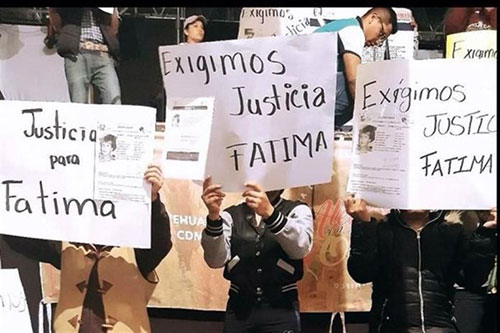 Exigimos
Justicia
Fatima
Justicia
para
Fatima
Exigimos
Justicia
FATIMA
Exigimos
Exigimos
JUSTIC
FATIMA
CDM